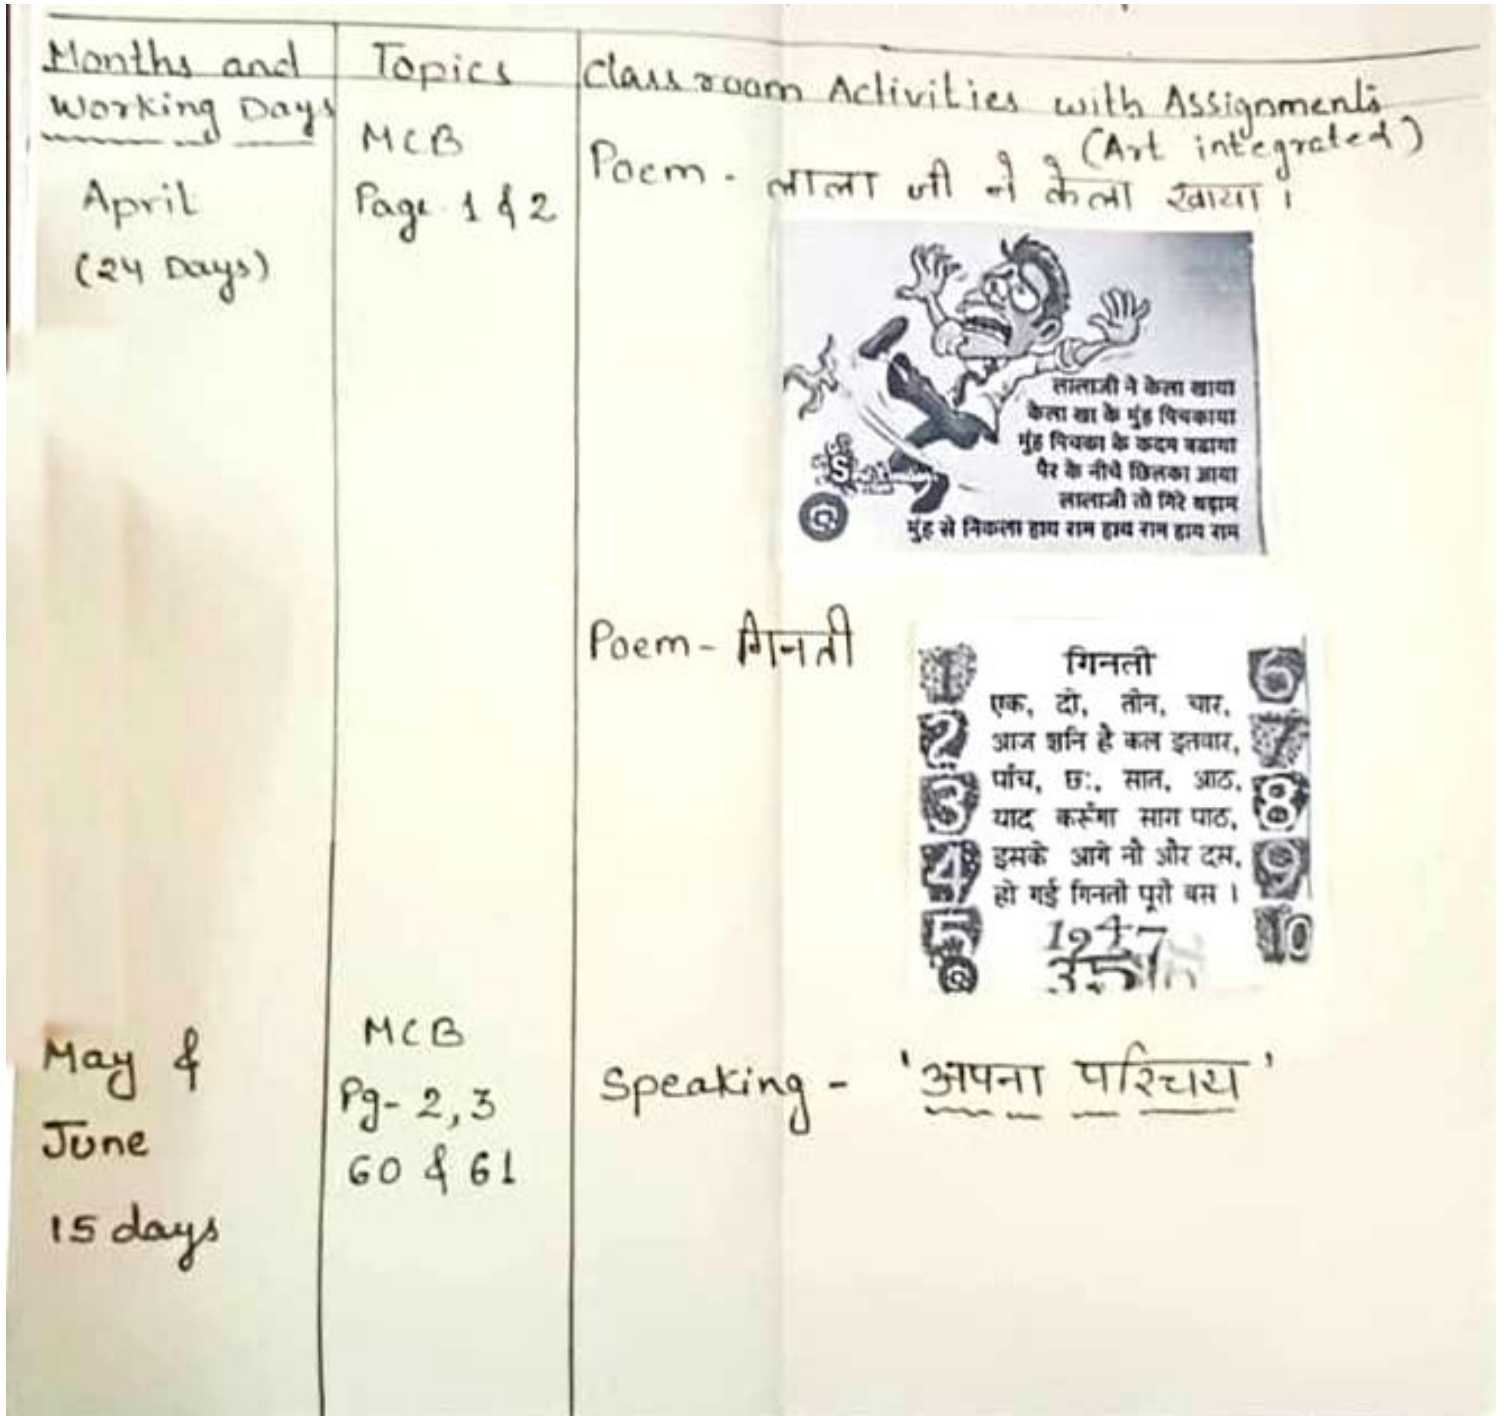 Months and
Working Days
Topics
Classroom Activities with Assignments
(Art integrated)
April
(24 Days)
MCB
Page 1 & 2
Poem - लाला जी ने केला खाया।
लालाजी ने केला खाया
केला खा के मुंह पिचकाया
मुंह पिचका के कदम बढाया
पैर के नीचे छिलका आया
लालाजी तो गिरे धड़ाम
मुंह से निकला हाय राम हाय राम हाय राम
Poem - गिनती
गिनती
एक, दो, तीन, चार,
आज शनि है कल इतवार,
पाँच, छः, सात, आठ,
याद करूँगा सारा पाठ,
इसके आगे नौ और दस,
हो गई गिनती पूरी बस।
1
2
3
4
5
6
7
8
9
10
1947
May &
June
15 days
MCB
Pg- 2, 3
60 & 61
Speaking - 'अपना परिचय'